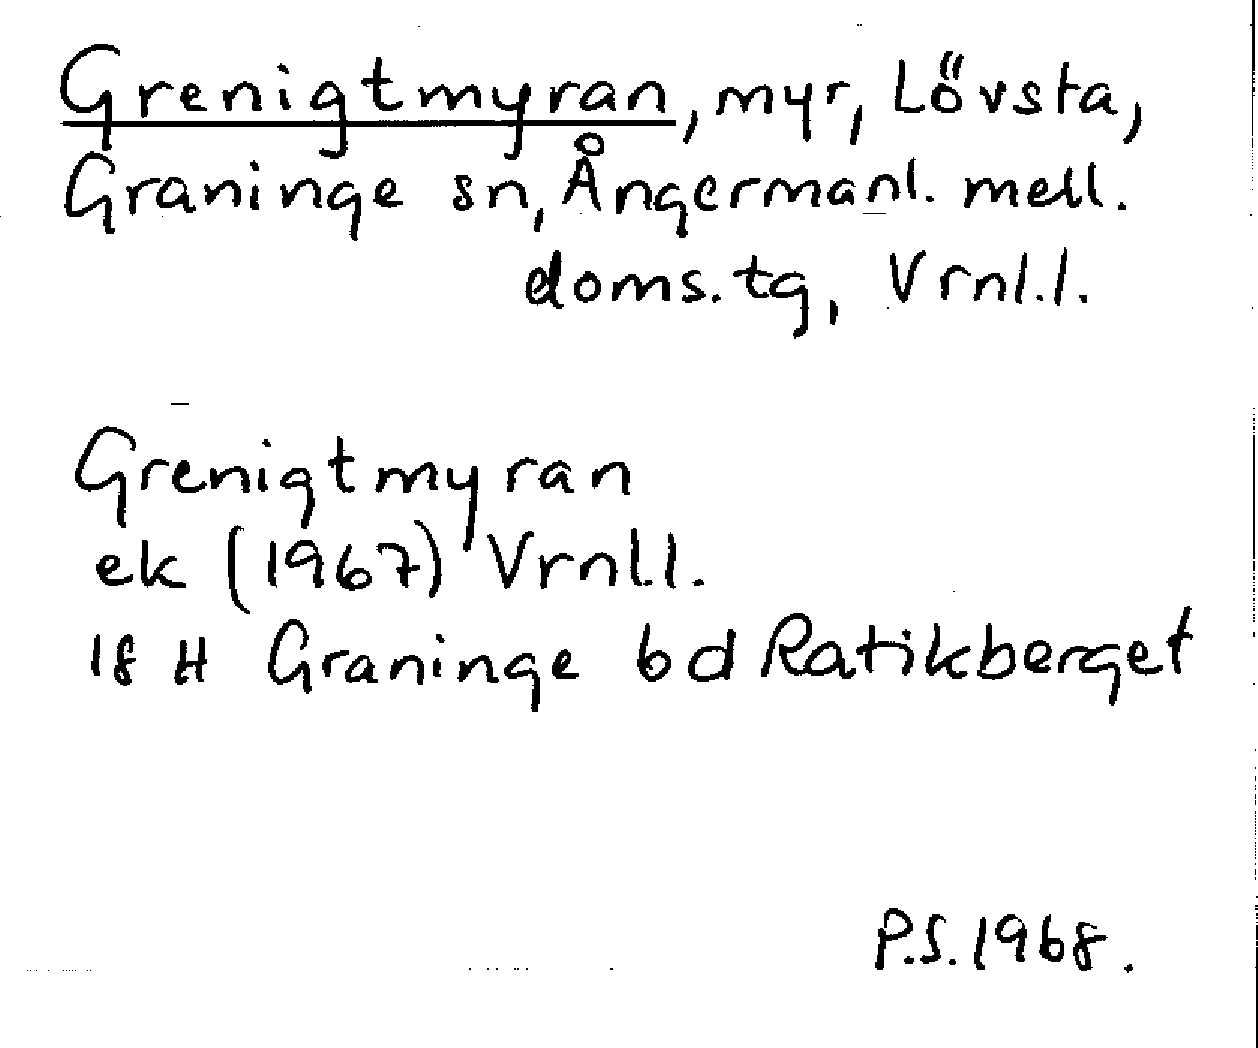 Grenigtmyran, myr, Lövsta,
Graninge sn, Ångermanl. mell.
doms. tg, Vrnl.l.
Grenigtmyran
ek (1967) Vrnl.l.
18 H Graninge bd Ratikberget
P.S. 1968.